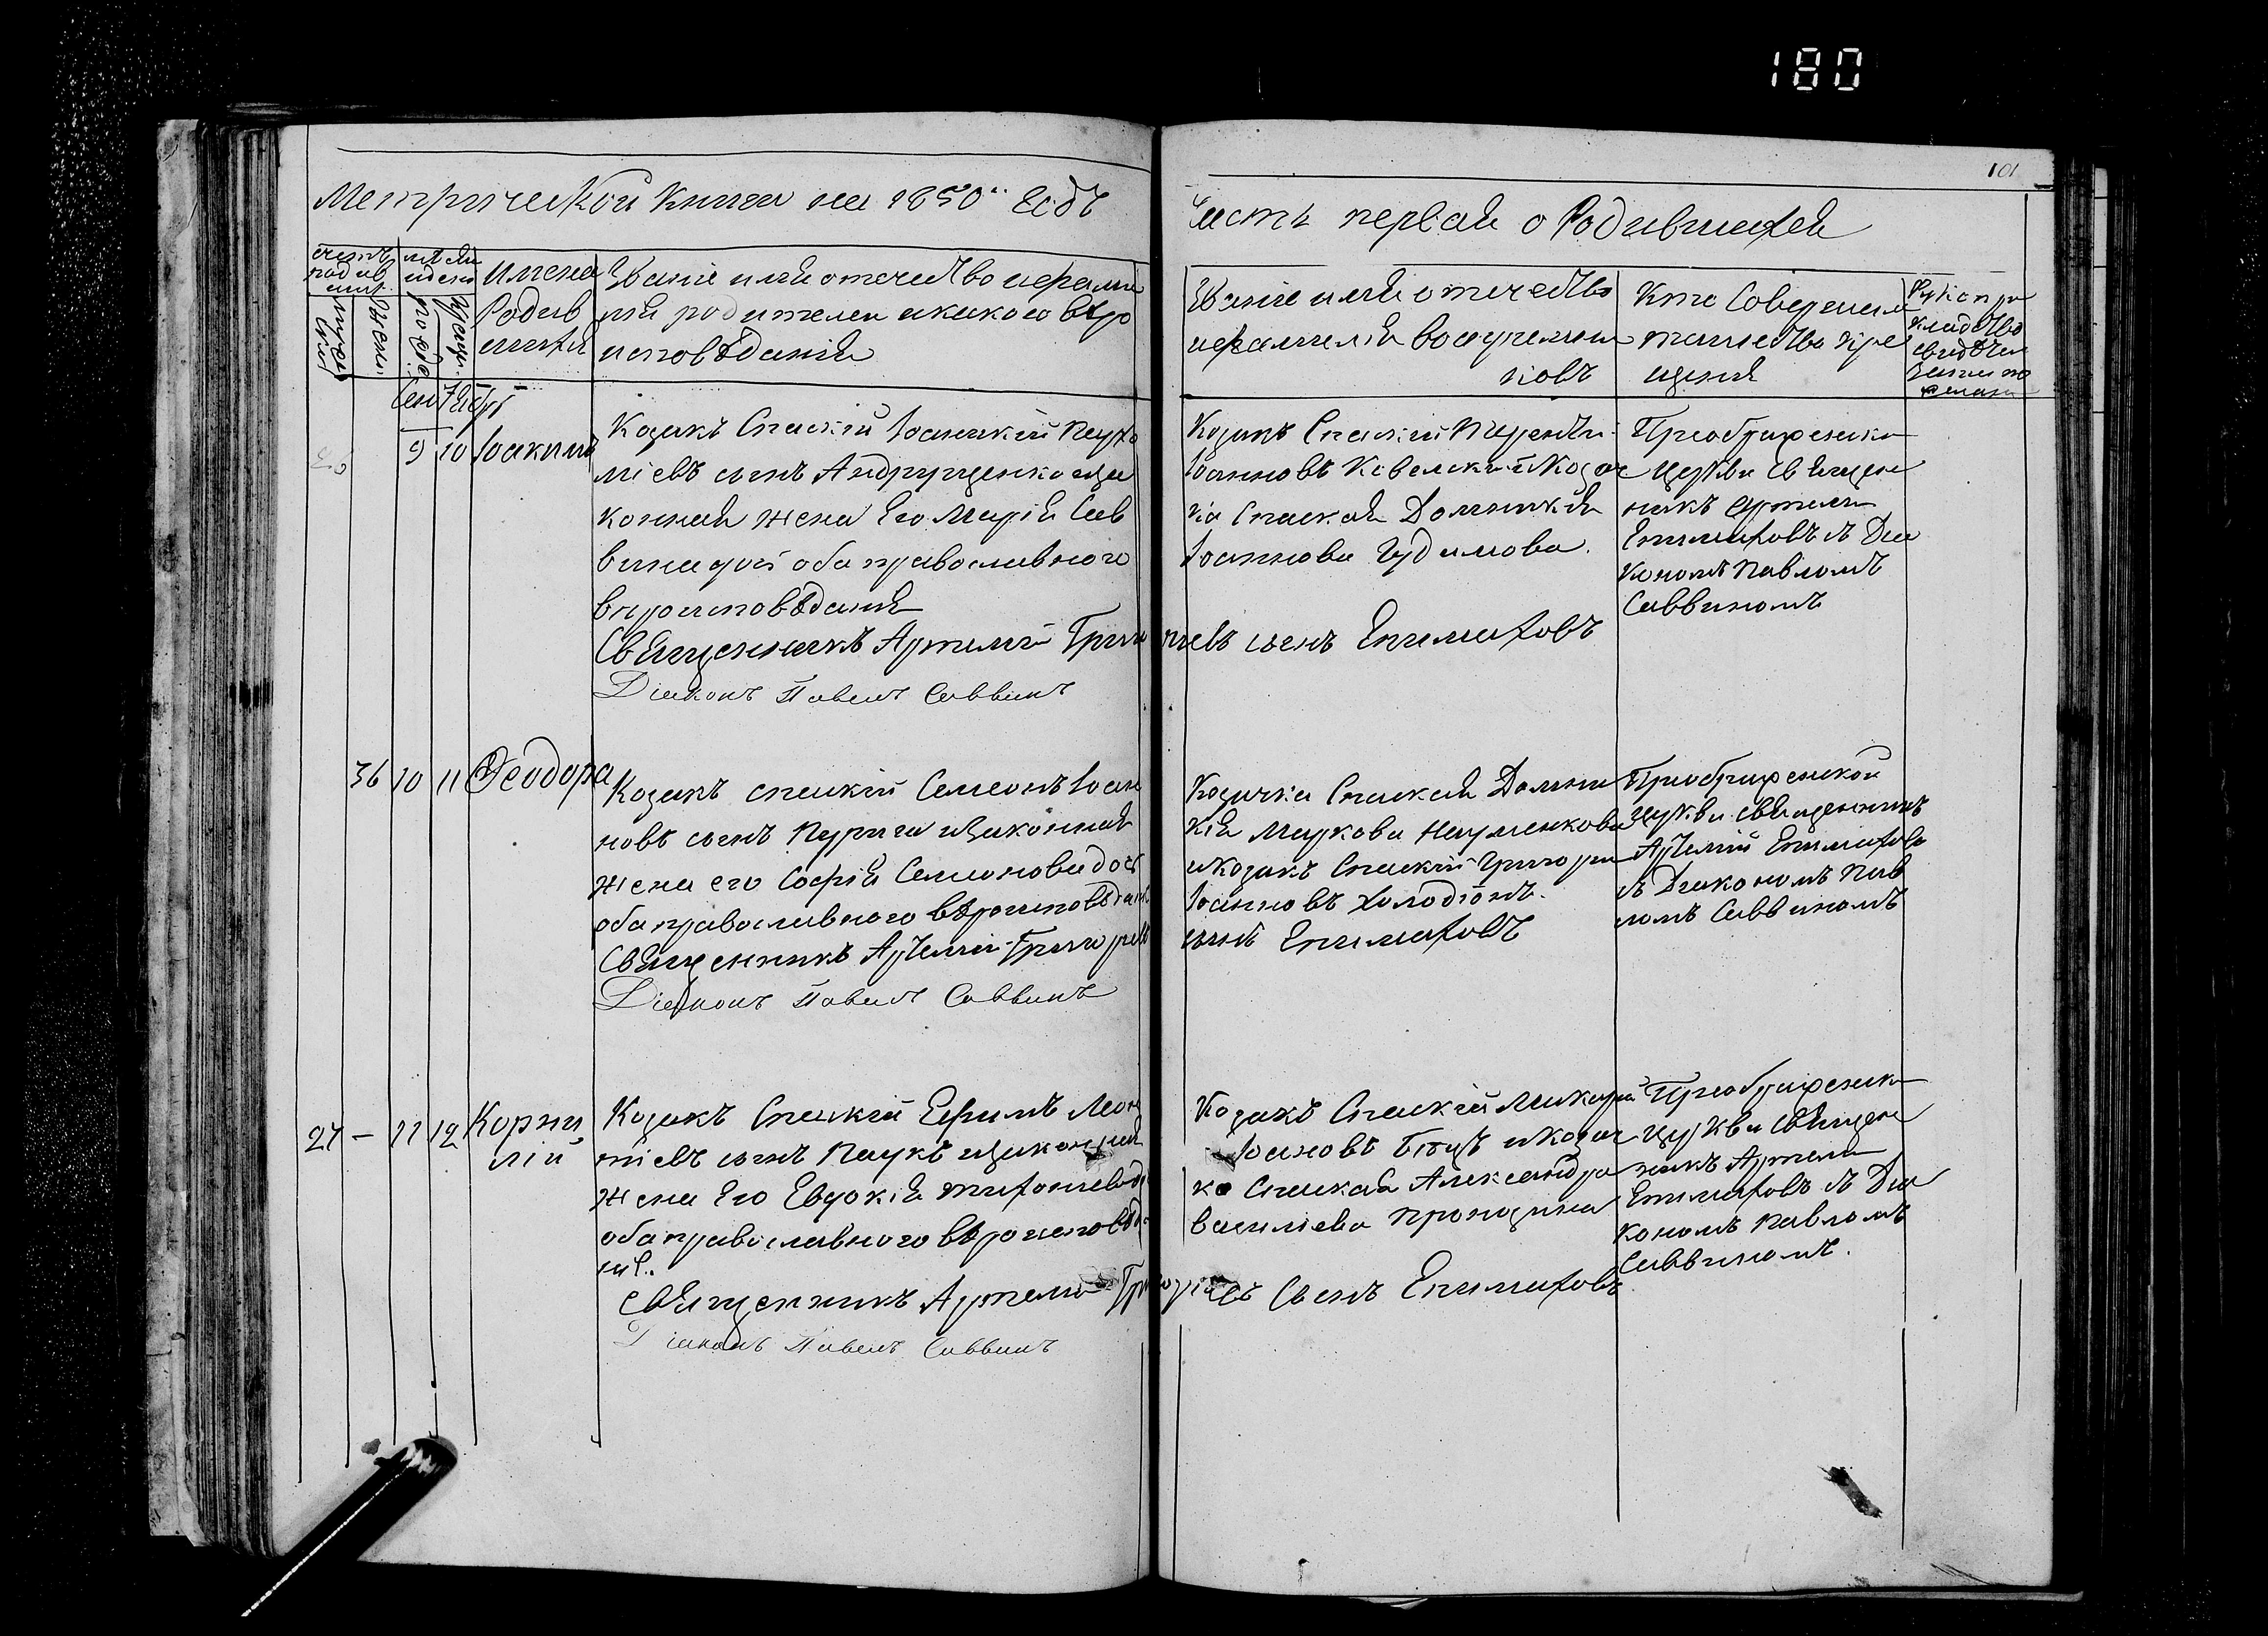 180
101
Метрической Книги на 1850 Годъ
Часть первая о Родившихся
имена
Родив
шихся
Званіе имя отечество и фами
лія родителей и какого вѣро
исповѣданія
Званіе имя отечество
и фамилія воспріемни
ковъ
Кто Совершалъ
таинство кре
щенія
Сентябрь
9 10 Іоакимъ
Козакъ Спаскій Іоаникій Пахо
міевъ сынъ Андрущенко и за
конная жена Его Марія Сав
вина дочь оба православного
вероисповѣданія
Священникъ Артемій Григо
ріевъ сынъ Епимаховъ
Діаконъ Павелъ Саввинъ
Козакъ Спаскій Терентій
Іоанновъ Козач
ка Спаская Домникія
Іоаннова Гудимова.
Преображенской
Церкви Священ
никъ Артемій
Епимаховъ съ Діа
кономъ Павломъ
Саввиномъ
36 10 11 Феодора
Козакъ спаскій Семеонъ Іоан
новъ сынъ и законная
жена его Софія Семионова дочь
оба православного вѣроисповѣдан
Священникъ Артемій Григоріевъ
сынъ Епимаховъ
Діаконъ Павелъ Саввинъ
Козачка Спаская Домни
кія Маркова Науменкова
и Козакъ Спаскій Григорій
Іоанновъ Холодіонъ.
Преображенской
Церкви священникъ
Артемій Епимаховъ
съ Діакономъ Пав
ломъ Саввиномъ
27 — 11 12 Корни
лій
Козакъ Спаскій Ефимъ Леон
тіевъ сынъ Паукъ и законная
жена Его Евдокія
оба православного вѣроисповѣда
нія.
священникъ Артемій Григоріевъ Сынъ Епимаховъ
Діаконъ Павелъ Саввинъ
Козакъ Спаскій Макарій
Іоановъ и Козач
ка Спаская Александра
Василіева
Преображенской
Церкви Священ
никъ Артемій
Епимаховъ съ Діа
кономъ Павломъ
Саввиномъ.